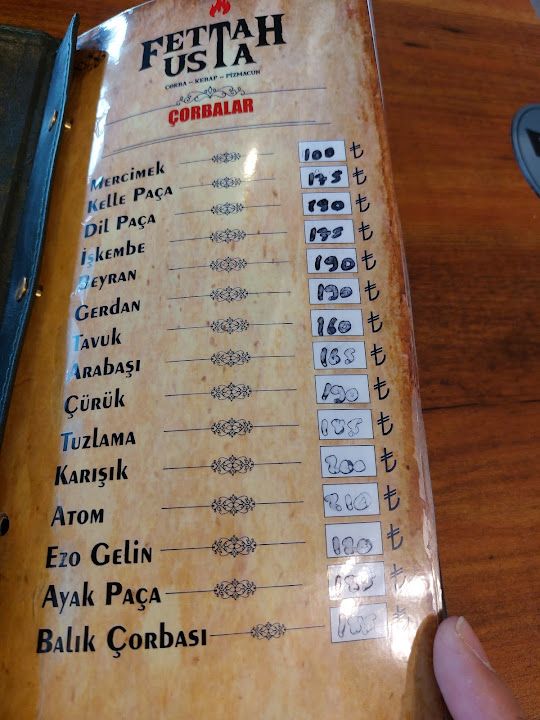 FETTAH
USTA
ÇORBA – KEBAP – PİZMACUN
ÇORBALAR
MERCIMEK 100 ₺
KELLE PAÇA 175 ₺
DIL PAÇA 190 ₺
İŞKEMBE 175 ₺
BEYRAN 190 ₺
GERDAN 190 ₺
TAVUK 160 ₺
ARABAŞI 165 ₺
ÇÜRÜK 190 ₺
TUZLAMA ₺
KARIŞIK 200 ₺
ATOM 210 ₺
EZO GELIN ₺
AYAK PAÇA ₺
BALIK ÇORBASI ₺